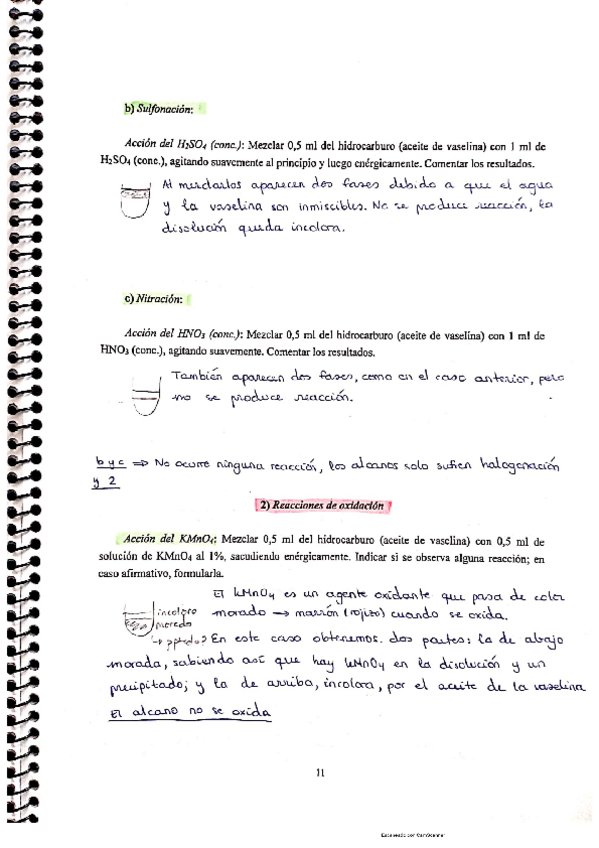 b) Sulfonación:
Acción del H₂SO₄ (conc.): Mezclar 0,5 ml del hidrocarburo (aceite de vaselina) con 1 ml de
H₂SO₄ (conc.), agitando suavemente al principio y luego enérgicamente. Comentar los resultados.
Al mezclarlos aparecen dos fases debido a que el agua
y la vaselina son inmiscibles. No se produce reacción, la
disolución queda incolora.
c) Nitración:
Acción del HNO₃ (conc.): Mezclar 0,5 ml del hidrocarburo (aceite de vaselina) con 1 ml de
HNO₃ (conc.), agitando suavemente. Comentar los resultados.
También aparecen dos fases, como en el caso anterior, pero
no se produce reacción.
b y c ⇒ No ocurre ninguna reacción, los alcanos solo sufren halogenación
y 2
2) Reacciones de oxidación
Acción del KMnO₄: Mezclar 0,5 ml del hidrocarburo (aceite de vaselina) con 0,5 ml de
solución de KMnO₄ al 1%, sacudiendo enérgicamente. Indicar si se observa alguna reacción; en
caso afirmativo, formularla.
El KMnO₄ es un agente oxidante que pasa de color
morado → marrón (rojizo) cuando se oxida.
incoloro
morado
→ pptado?
En este caso obtenemos dos partes: la de abajo
morada, sabiendo así que hay KMnO₄ en la disolución y un
precipitado; y la de arriba, incolora, por el aceite de la vaselina
El alcano no se oxida
11
Escaneado con CamScanner